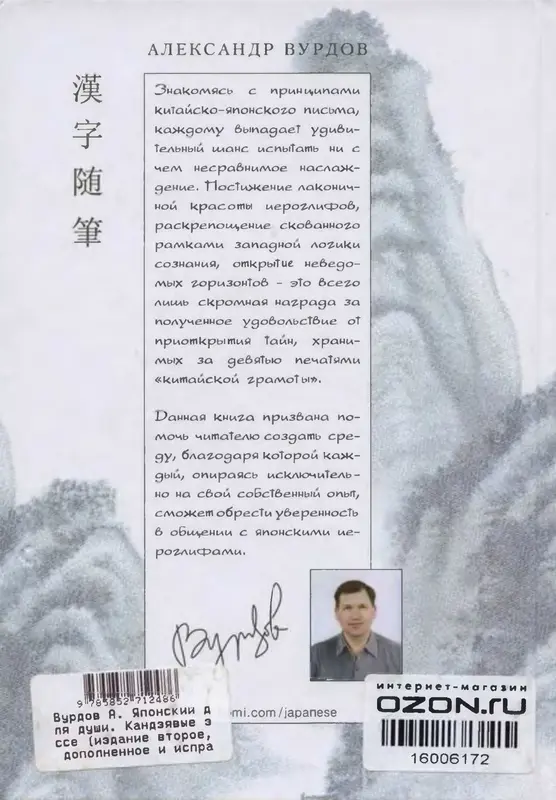 АЛЕКСАНДР ВУРДОВ
漢字随筆
Знакомясь с принципами
китайско-японского письма,
каждому выпадает удиви-
тельный шанс испытать ни с
чем несравнимое наслаж-
дение. Постижение лаконич-
ной красоты иероглифов,
раскрепощение скованного
рамками западной логики
сознания, открытие неведо-
мых горизонтов - это всего
лишь скромная награда за
полученное удовольствие от
приоткрытия тайн, храни-
мых за девятью печатями
«китайской грамоты».
Данная книга призвана по-
мочь читателю создать сре-
ду, благодаря которой каж-
дый, опираясь исключитель-
но на свой собственный опыт,
сможет обрести уверенность
в общении с японскими ие-
роглифами.
Вурдов
omi.com/japanese
9 785852 712486
Вурдов А. Японский д
ля души. Кандзявые э
ссе (издание второе,
дополненное и испра
интернет-магазин
OZON.ru
16006172